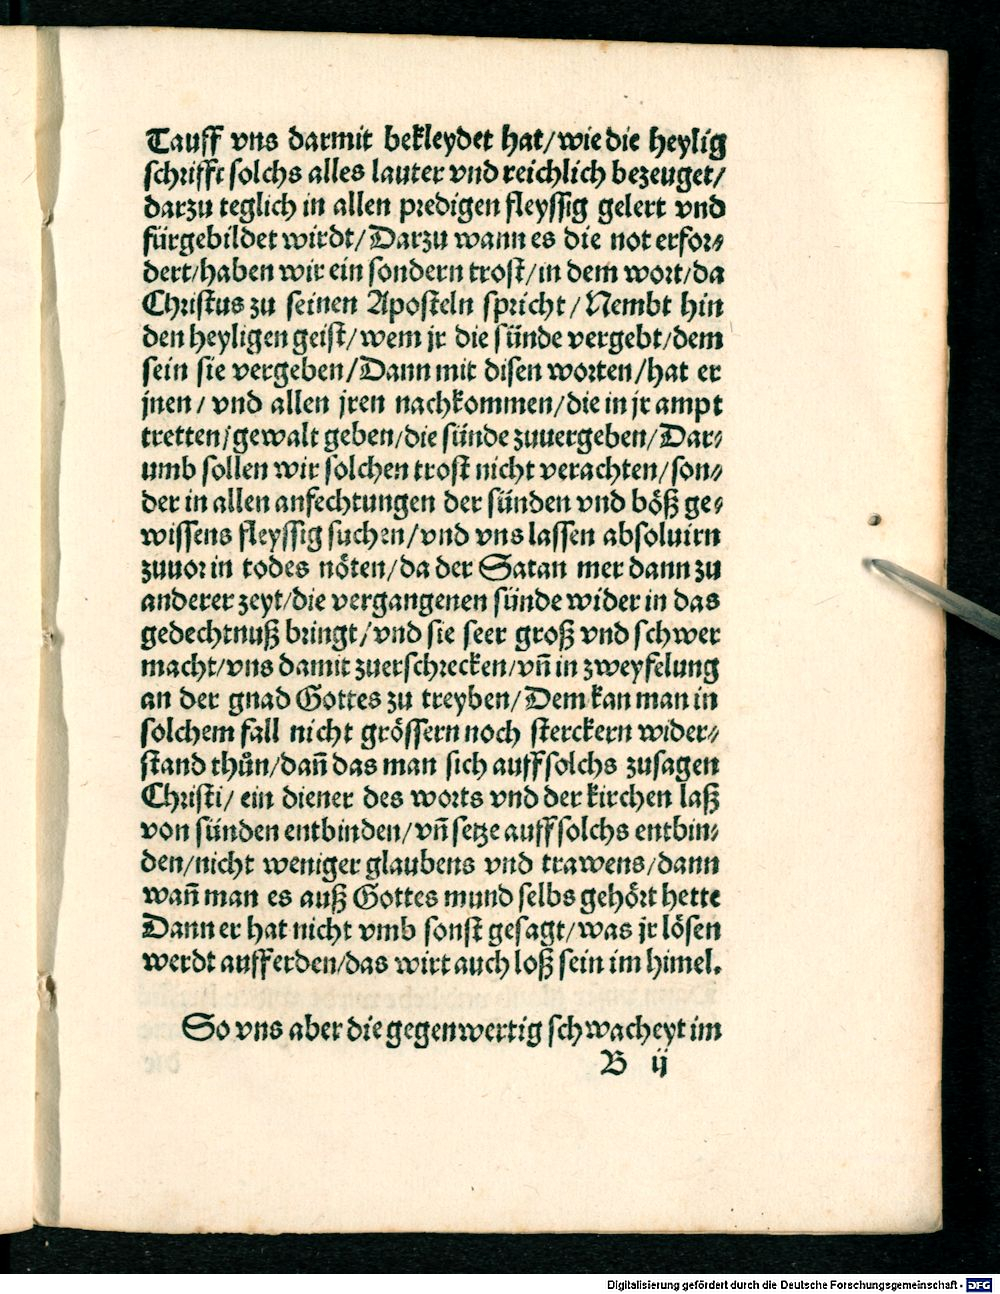 Tauff vns darmit bekleydet hat/wie die heylig
schrifft solchs alles lauter vnd reichlich bezeuget/
darzu teglich in allen predigen fleyssig gelert vnd
fürgebildet wirdt/Darzu wann es die not erfor⸗
dert/haben wir ein sondern trost/in dem wort/da
Christus zu seinen Aposteln spricht/Nembt hin
den heyligen geist/wem jr die sünde vergebt/dem
sein sie vergeben/Dann mit disen worten/hat er
jnen/vnd allen jren nachkommen/die in jr ampt
tretten/gewalt geben/die sünde zuuergeben/Dar⸗
umb sollen wir solchen trost nicht verachten/son⸗
der in allen anfechtungen der sünden vnd böß ge⸗
wissens fleyssig suchen/vnd vns lassen absoluirn
zuuor in todes nöten/da der Satan mer dann zu
anderer zeyt/die vergangenen sünde wider in das
gedechtnuß bringt/vnd sie seer groß vnd schwer
macht/vns damit zuerschrecken/vñ in zweyfelung
an der gnad Gottes zu treyben/Dem kan man in
solchem fall nicht grössern noch sterckern wider⸗
stand thůn/dañ das man sich auff solchs zusagen
Christi/ ein diener des worts vnd der kirchen laß
von sünden entbinden/vñ setze auff solchs entbin⸗
den/nicht weniger glaubens vnd trawens/dann
wañ man es auß Gottes mund selbs gehört hette
Dann er hat nicht vmb sonst gesagt/was jr lösen
werdt auff erden/das wirt auch loß sein im himel.
So vns aber die gegenwertig schwacheyt im
B ij
Digitalisierung gefördert durch die Deutsche Forschungsgemeinschaft - DFG